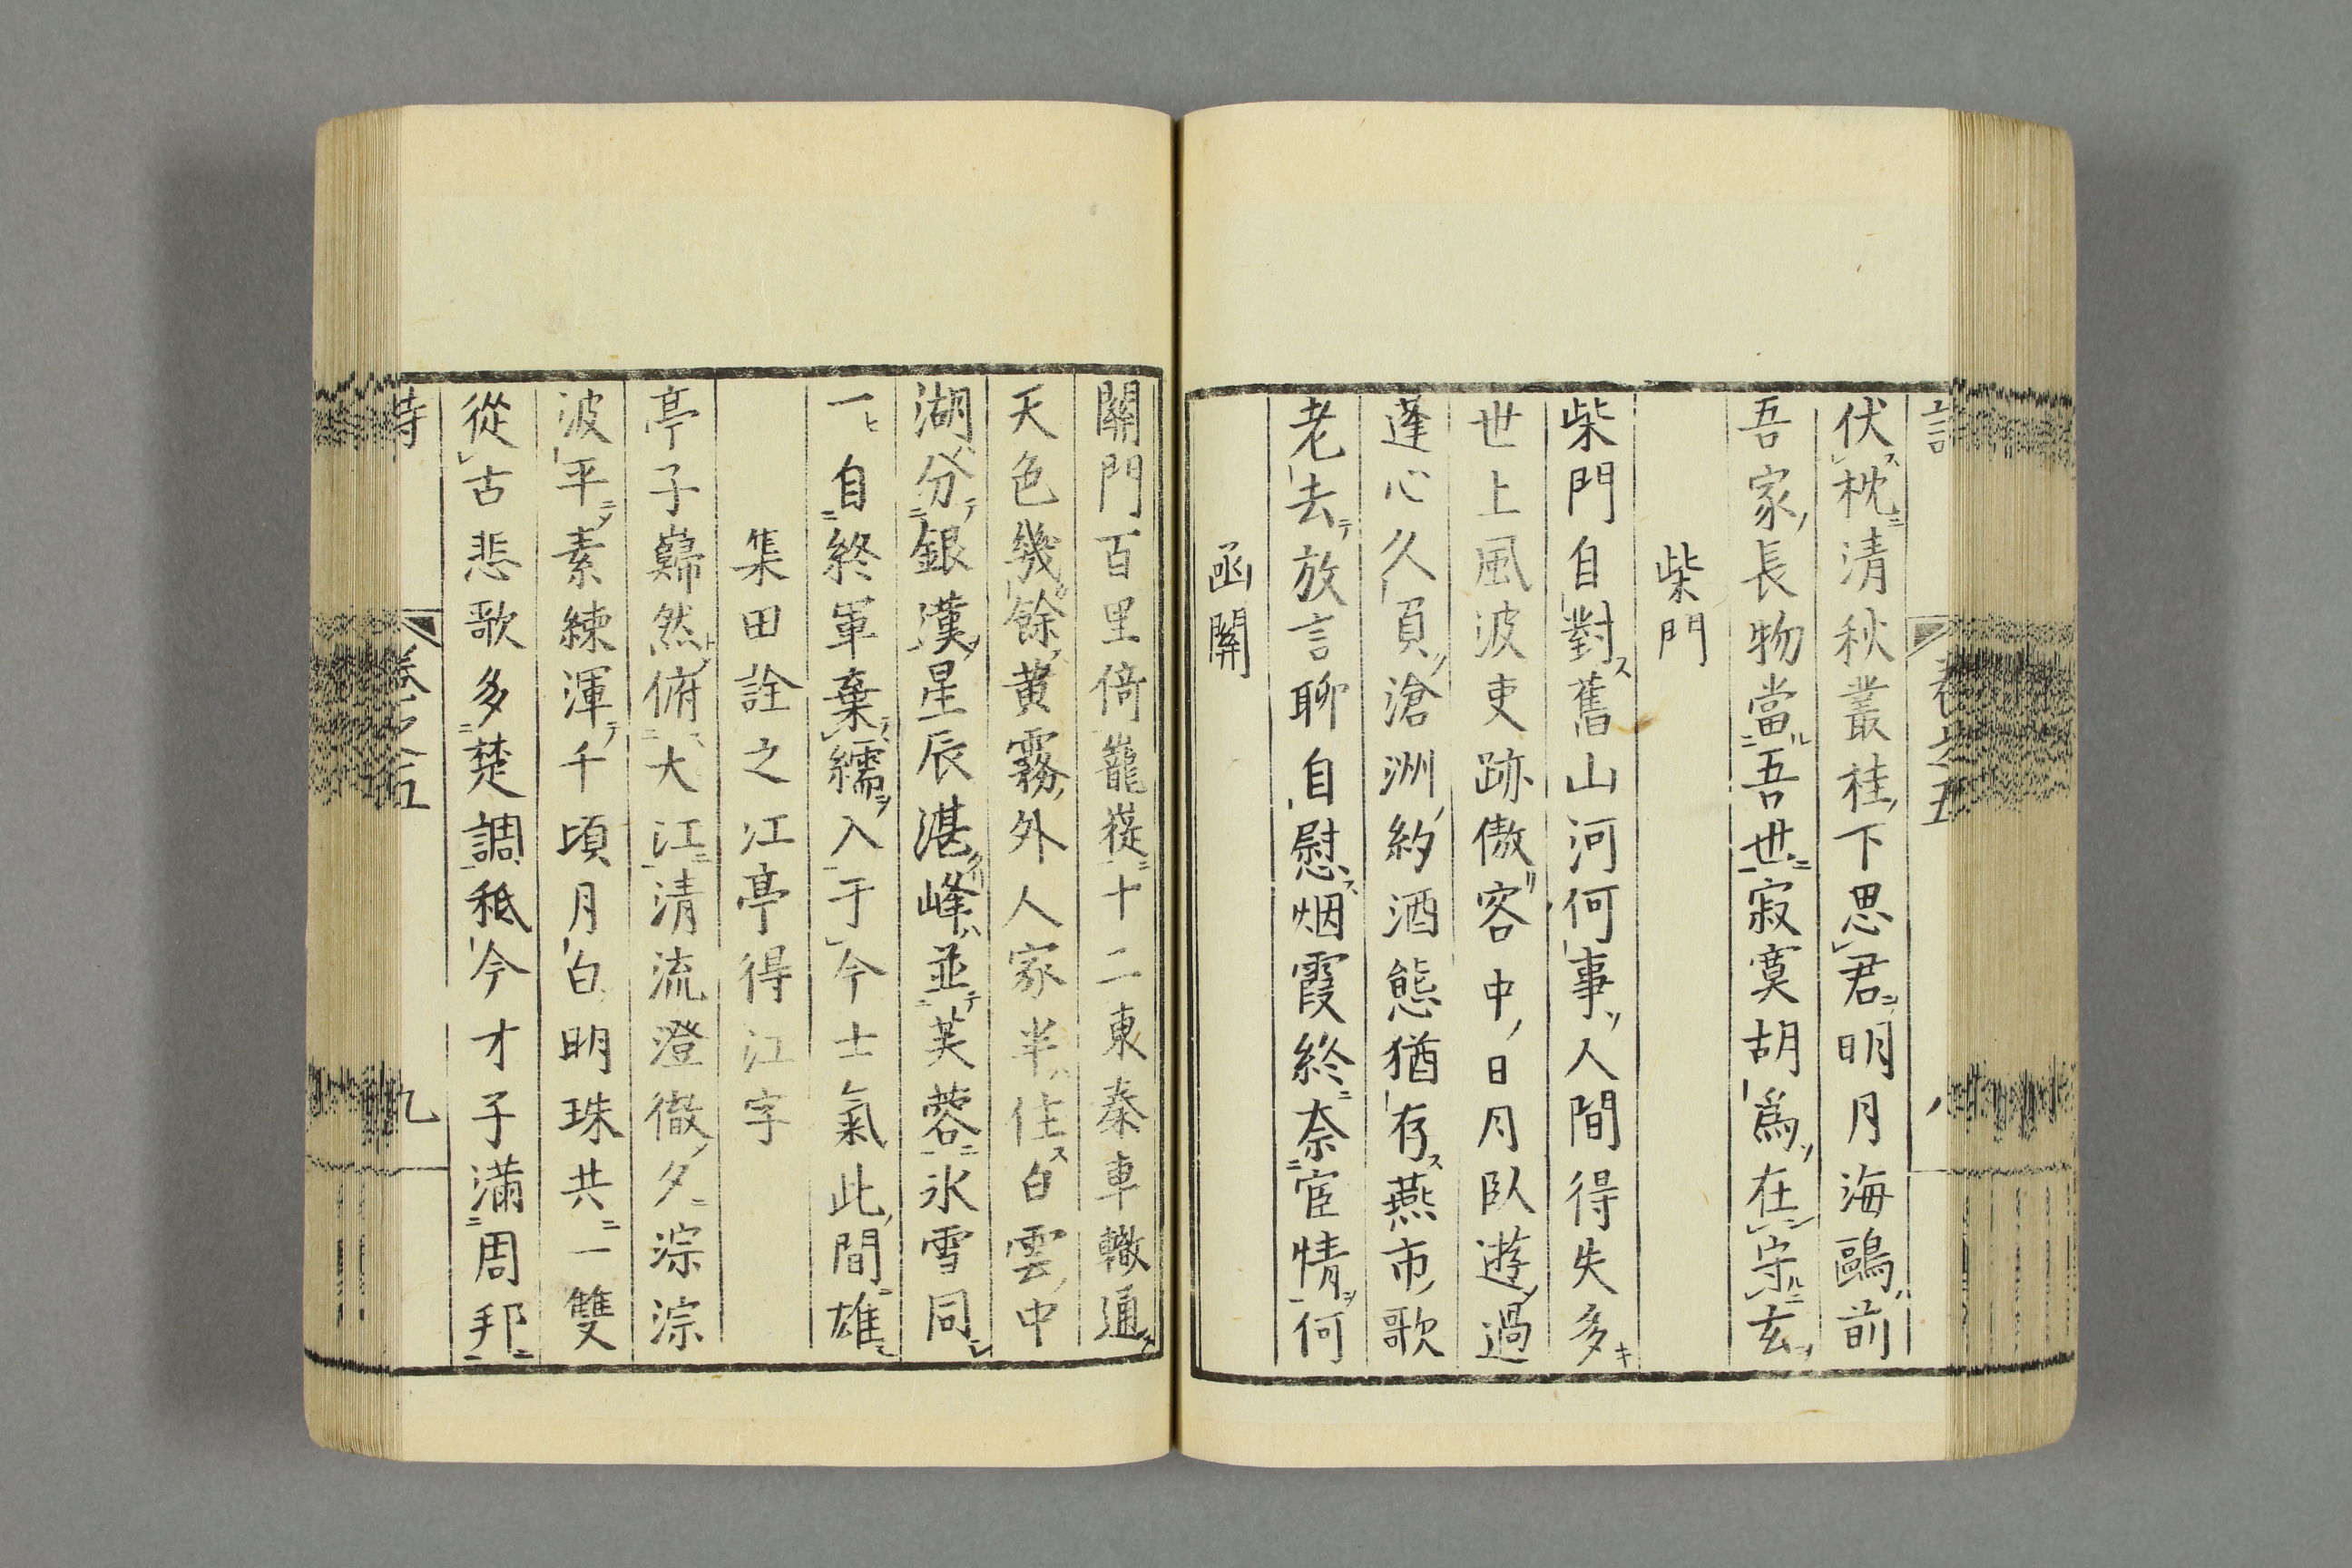 伏枕清秋叢桂下思君明月海鷗前
吾家長物當吾世寂寞胡爲在守玄
柴門
柴門自對舊山河何事人間得失多
世上風波吏跡傲客中日月臥遊過
蓬心久負滄洲約酒態猶存燕市歌
老去放言聊自慰烟霞終奈宦情何
函關
關門百里倚巃嵸十二東秦車轍通
天色幾餘黃霧外人家半住白雲中
湖分銀漢星辰湛峰並芙蓉氷雪同
一自終軍棄繻入于今士氣此間雄
集田詮之江亭得江字
亭子巋然俯大江清流澄徹夕淙淙
波平素練渾千頃月白明珠共一雙
從古悲歌多楚調秖今才子滿周邦
詩 卷之五 九